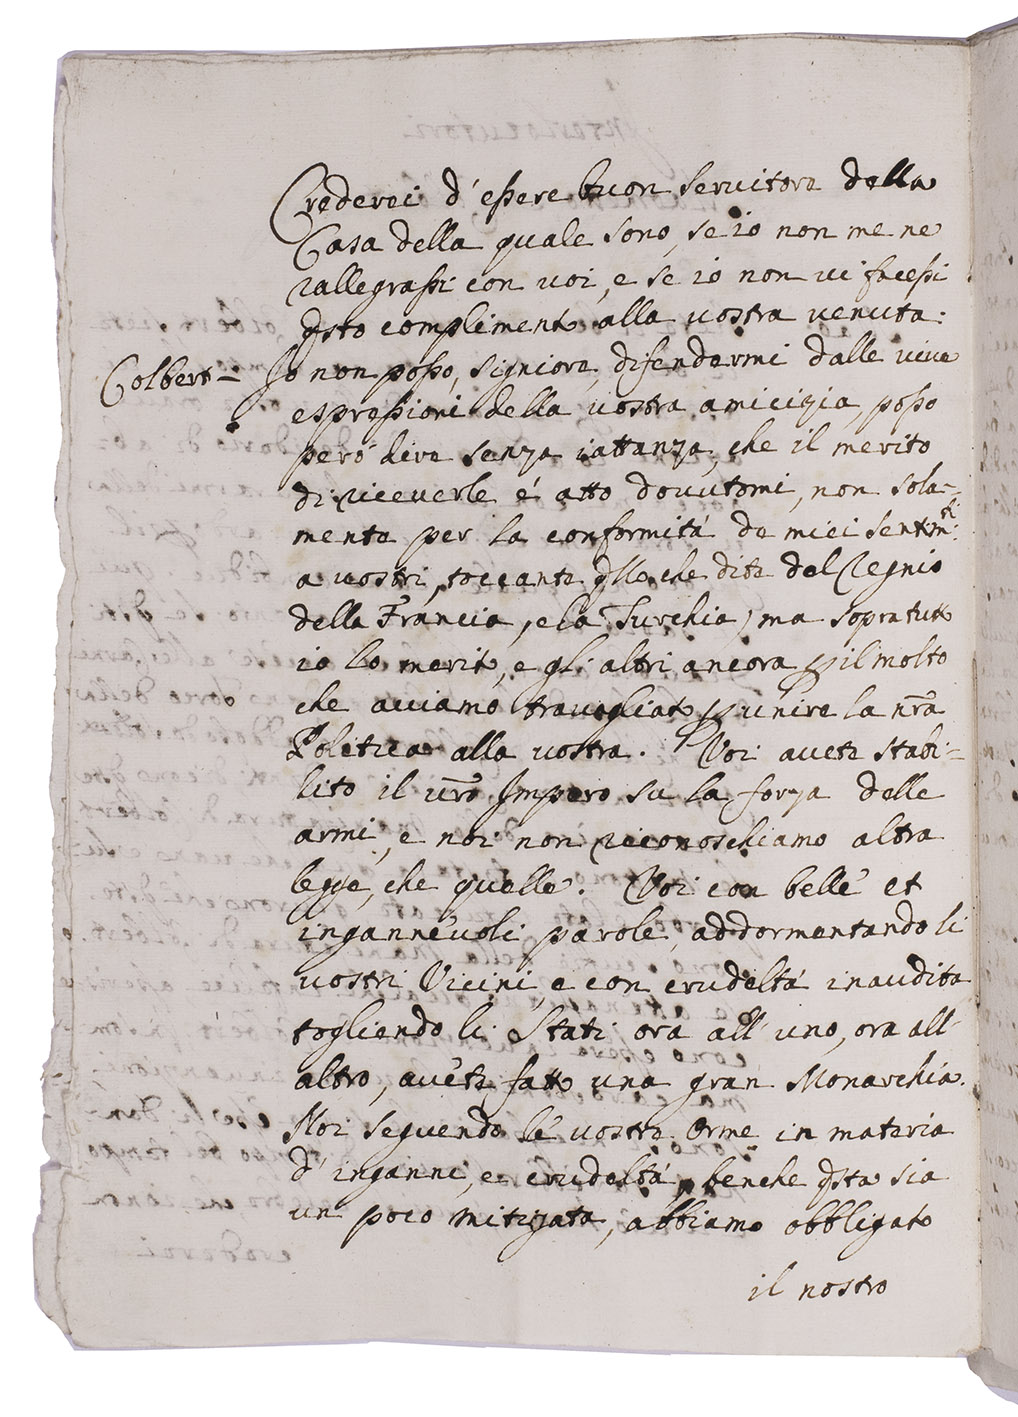 Crederei d'essere buon servitore della
Casa della quale sono, se io non me ne
rallegrassi con voi, e se io non vi facessi
qsto complimento alla vostra venuta.
Colbert = Io non posso, Signiore, difendermi dalle vive
espressioni della vostra amicizia, posso
peró dire senza iattanza, che il merito
di riceverle é atto dovutomi, non sola=
mente per la conformitá de miei sentimti.
a vostri, toccante qllo che dite del Regnio
della Francia, e la Turchia, ma sopratutto
io lo merito, e gli altri ancora p il molto
che aviamo travagliato p unire la nr̃a
Politica alla vostra. Voi avete stabi=
lito il vr̃o Impero su la forza delle
armi, e noi non riconoschiamo altra
legge, che quelle. Voi con belle et
ingannevoli parole, addormentando li
vostri Vicini, e con crudeltá inaudita
togliendo li Stati ora all' uno, ora all'
altro, avete fatto una gran Monarchia.
Noi seguendo le vostre Orme in materia
d' inganni, e crudeltá, benche qsta sia
un poco mitigata, abbiamo obbligato
il nostro